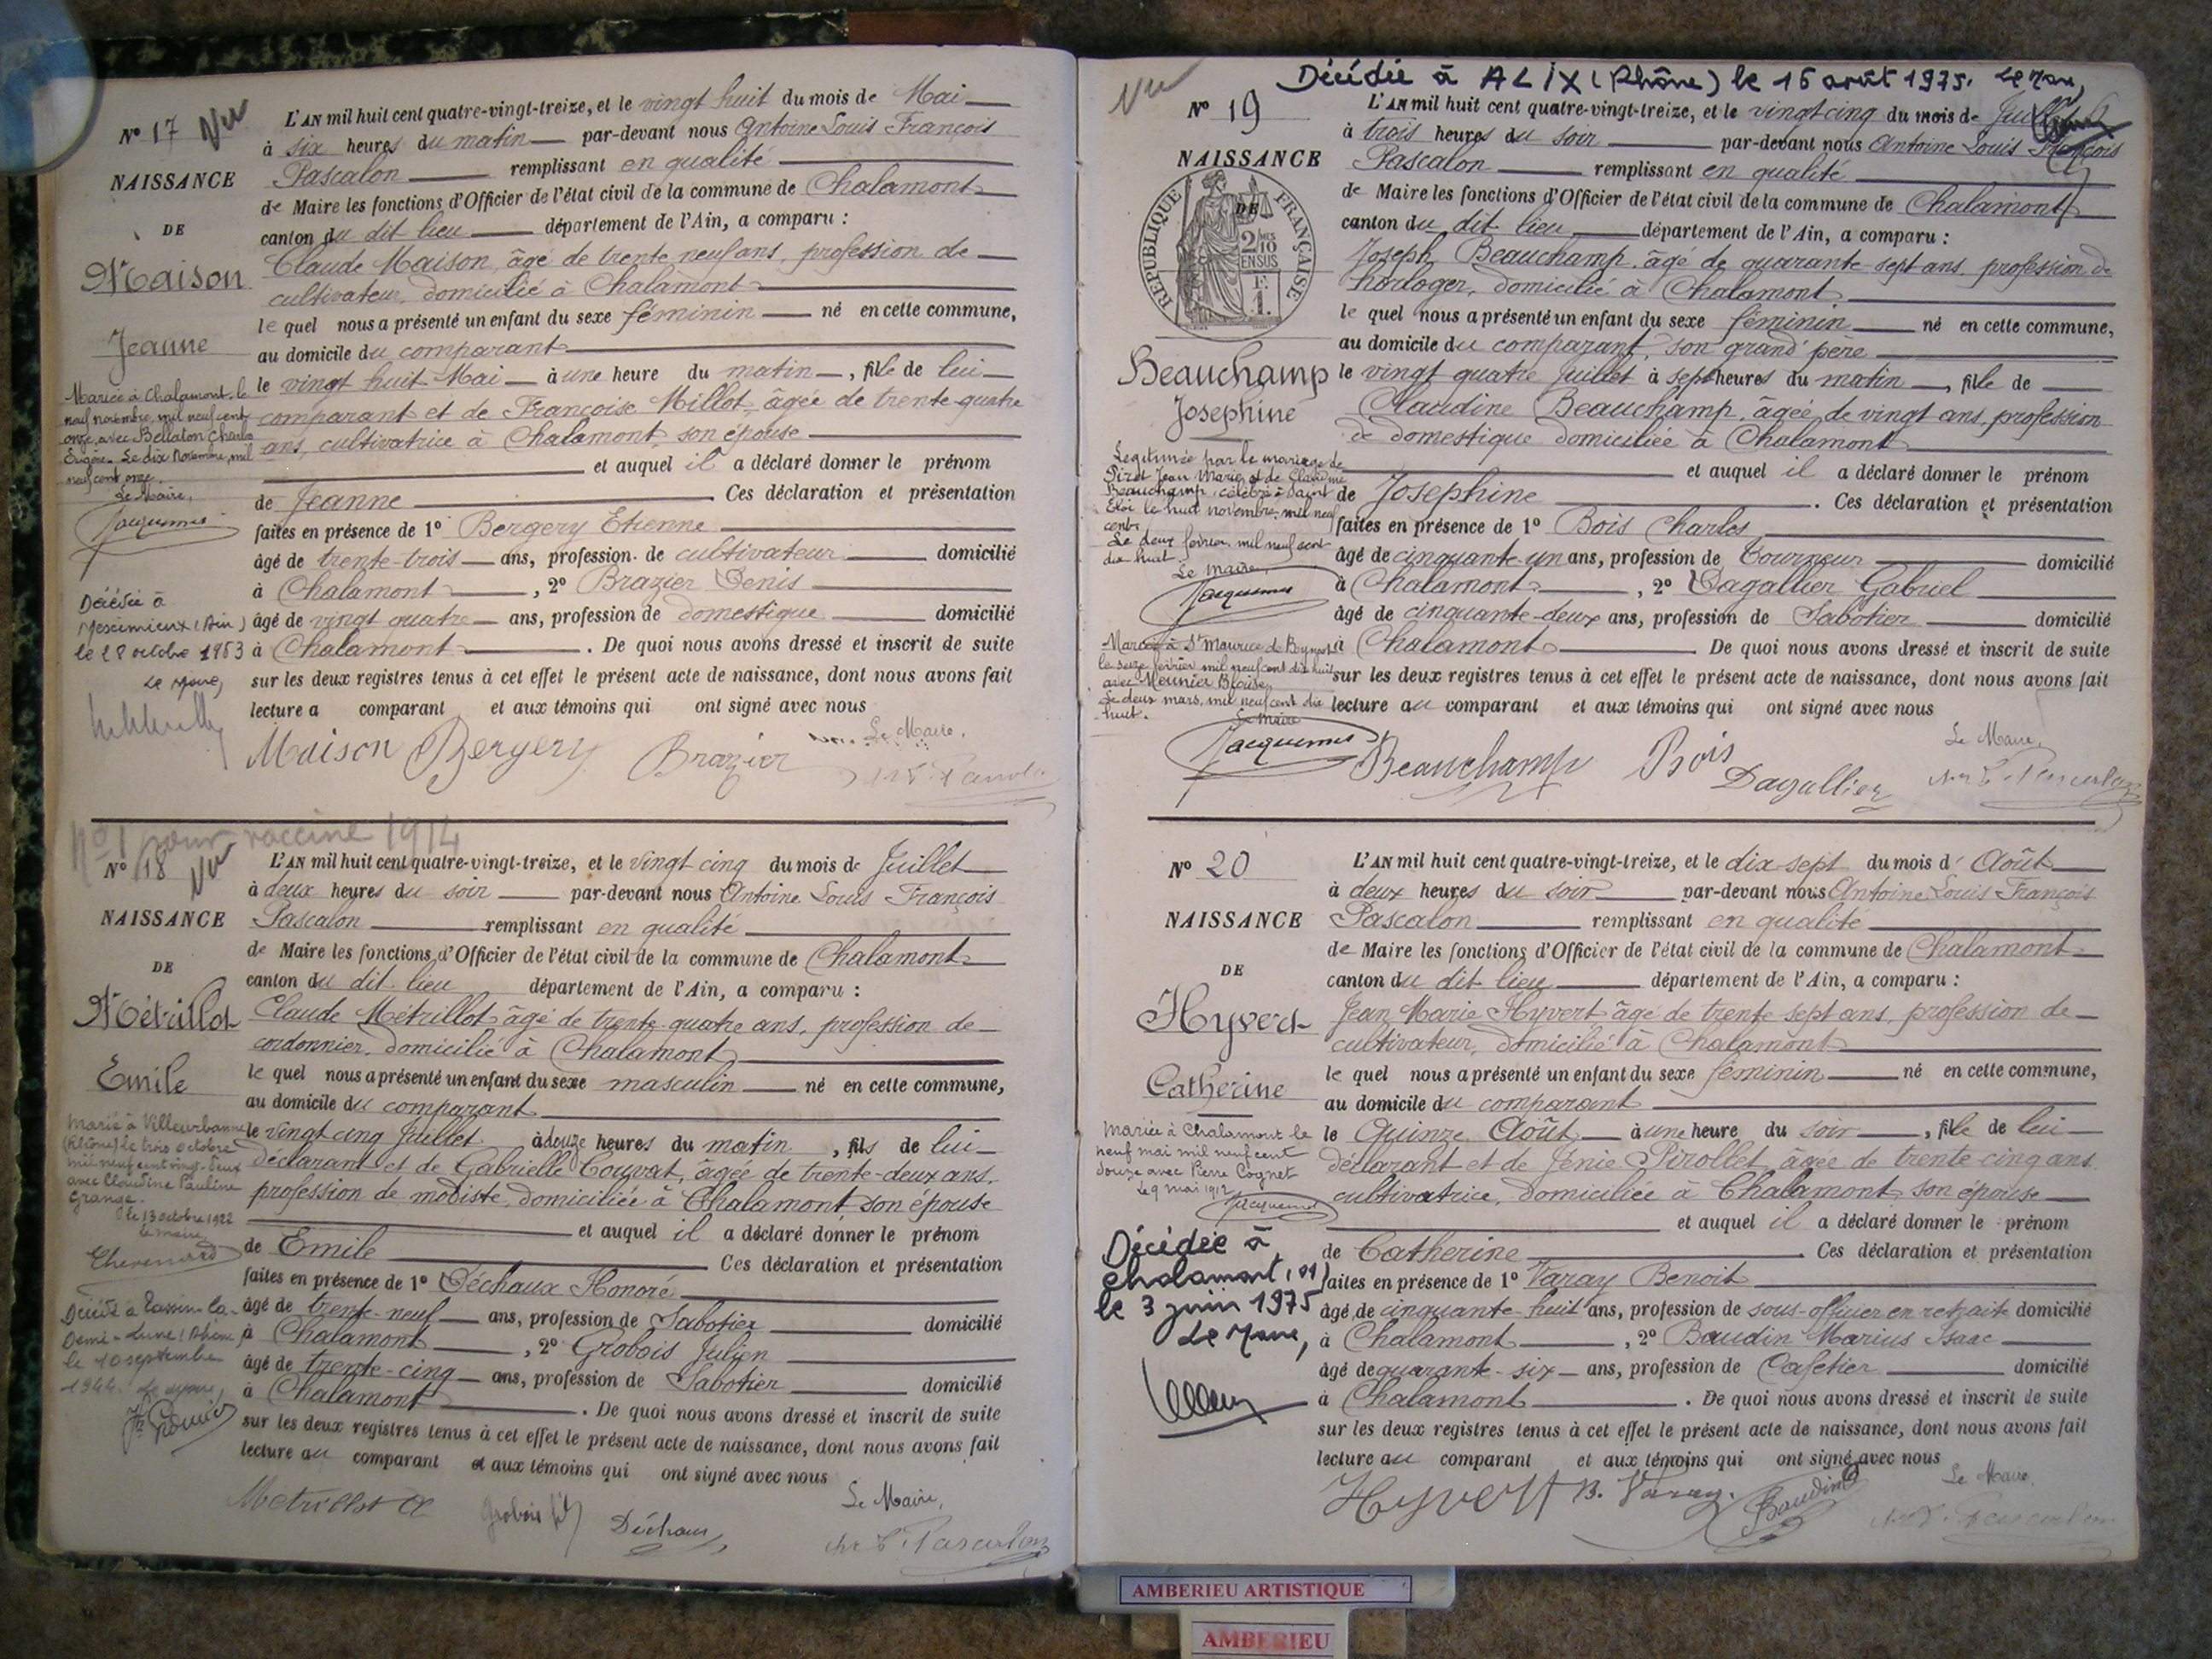 Nº 17 Vu
NAISSANCE
DE
Maison
Jeanne
Mariée à Chalamont le
neuf novembre mil neuf cent
onze avec Bellaton Charles
Eugène. Le dix Novembre mil
neuf cent onze.
Le Maire,
Jacquemin
Décédée à
Meximieux (Ain)
le 28 octobre 1953
Le Maire,
L'AN mil huit cent quatre-vingt-treize, et le vingt huit du mois de Mai
à six heures du matin par-devant nous Antoine Louis François
Pascalon remplissant en qualité
de Maire les fonctions d'Officier de l'état civil de la commune de Chalamont
canton du dit lieu département de l'Ain, a comparu :
Claude Maison, âgé de trente neuf ans, profession de
cultivateur, domicilié à Chalamont
le quel nous a présenté un enfant du sexe féminin né en cette commune,
au domicile du comparant
le vingt huit Mai à une heure du matin, fille de lui
comparant et de Françoise Millot, âgée de trente quatre
ans, cultivatrice à Chalamont, son épouse
et auquel il a déclaré donner le prénom
de Jeanne. Ces déclaration et présentation
faites en présence de 1º Bergery Etienne
âgé de trente-trois ans, profession de cultivateur domicilié
à Chalamont, 2º Brazier Denis
âgé de vingt quatre ans, profession de domestique domicilié
à Chalamont. De quoi nous avons dressé et inscrit de suite
sur les deux registres tenus à cet effet le présent acte de naissance, dont nous avons fait
lecture a comparant et aux témoins qui ont signé avec nous
Le Maire,
Maison Bergery Brazier
Nº 1 pour vaccine 1914
Nº 18 Vu
NAISSANCE
DE
Métrillot
Emile
Marié à Villeurbanne
(Rhône) le trois octobre
mil neuf cent vingt-deux
avec Claudine Pauline
Grange.
Le 13 octobre 1922
Le maire
Chevenard
Décédé à Tassin-la-
Demi-Lune (Rhône)
le 10 septembre
1944. Le Maire,
L'AN mil huit cent quatre-vingt-treize, et le vingt cinq du mois de Juillet
à deux heures du soir par-devant nous Antoine Louis François
Pascalon remplissant en qualité
de Maire les fonctions d'Officier de l'état civil de la commune de Chalamont
canton du dit lieu département de l'Ain, a comparu :
Claude Métrillot, âgé de trente quatre ans, profession de
cordonnier, domicilié à Chalamont
le quel nous a présenté un enfant du sexe masculin né en cette commune,
au domicile du comparant
le vingt cinq Juillet à douze heures du matin, fils de lui
déclarant et de Gabrielle Couvat, âgée de trente-deux ans,
profession de modiste, domiciliée à Chalamont, son épouse
et auquel il a déclaré donner le prénom
de Emile Ces déclaration et présentation
faites en présence de 1º Déchaux Honoré
âgé de trente-neuf ans, profession de Sabotier domicilié
à Chalamont, 2º Grobois Julien
âgé de trente-cinq ans, profession de Sabotier domicilié
à Chalamont. De quoi nous avons dressé et inscrit de suite
sur les deux registres tenus à cet effet le présent acte de naissance, dont nous avons fait
lecture au comparant et aux témoins qui ont signé avec nous
Le Maire,
Metrillot Grobois Déchaux Pascalon
Vu Décédée à ALIX (Rhône) le 16 août 1975. Le Maire,
Nº 19
NAISSANCE
DE
REPUBLIQUE FRANÇAISE
2/10 EN SUS
1F.
Beauchamp
Josephine
Legitimée par le mariage de
Pizot Jean Marie et de Claudine
Beauchamp, célébré à Saint
Eloi le huit novembre mil neuf
cent.
Le deux février mil neuf cent
dix huit
Le Maire,
Jacquemin
Mariée à St Maurice de Beynost
le seize février mil neuf cent dix huit
avec Meunier Blaise.
Le deux mars, mil neuf cent dix
huit.
Le Maire
Jacquemin
L'AN mil huit cent quatre-vingt-treize, et le vingt cinq du mois de Juillet
à trois heures du soir par-devant nous Antoine Louis François
Pascalon remplissant en qualité
de Maire les fonctions d'Officier de l'état civil de la commune de Chalamont
canton du dit lieu département de l'Ain, a comparu :
Joseph Beauchamp, âgé de quarante sept ans, profession de
horloger, domicilié à Chalamont
le quel nous a présenté un enfant du sexe féminin né en cette commune,
au domicile du comparant, son grand'père
le vingt quatre Juillet à sept heures du matin, fille de
Claudine Beauchamp, âgée de vingt ans, profession
de domestique domiciliée à Chalamont
et auquel il a déclaré donner le prénom
de Josephine. Ces déclaration et présentation
faites en présence de 1º Bois Charles
âgé de cinquante-un ans, profession de Tourneur domicilié
à Chalamont, 2º Dagallier Gabriel
âgé de cinquante-deux ans, profession de Sabotier domicilié
à Chalamont. De quoi nous avons dressé et inscrit de suite
sur les deux registres tenus à cet effet le présent acte de naissance, dont nous avons fait
lecture au comparant et aux témoins qui ont signé avec nous
Le Maire,
Beauchamp Bois Dagallier Pascalon
Nº 20
NAISSANCE
DE
Hyvert
Catherine
Mariée à Chalamont le
neuf mai mil neuf cent
douze avec Pierre Cognet
Le 9 mai 1912
Jacquemin
Décédée à
Chalamont, (01)
le 3 juin 1975
Le Maire,
L'AN mil huit cent quatre-vingt-treize, et le dix-sept du mois d' Août
à deux heures du soir par-devant nous Antoine Louis François
Pascalon remplissant en qualité
de Maire les fonctions d'Officier de l'état civil de la commune de Chalamont
canton du dit lieu département de l'Ain, a comparu :
Jean Marie Hyvert, âgé de trente sept ans, profession de
cultivateur, domicilié à Chalamont
le quel nous a présenté un enfant du sexe féminin né en cette commune,
au domicile du comparant
le Quinze Août à une heure du soir, fille de lui
déclarant et de Jénie Pirollet, âgée de trente cinq ans
cultivatrice, domiciliée à Chalamont, son épouse
et auquel il a déclaré donner le prénom
de Catherine. Ces déclaration et présentation
faites en présence de 1º Varay Benoit
âgé de cinquante huit ans, profession de sous-officier en retraite domicilié
à Chalamont, 2º Baudin Marius Isaac
âgé de quarante-six ans, profession de Cafetier domicilié
à Chalamont. De quoi nous avons dressé et inscrit de suite
sur les deux registres tenus à cet effet le présent acte de naissance, dont nous avons fait
lecture au comparant et aux témoins qui ont signé avec nous
Le Maire,
Hyvert B. Varay. Baudin
AMBERIEU ARTISTIQUE
AMBERIEU